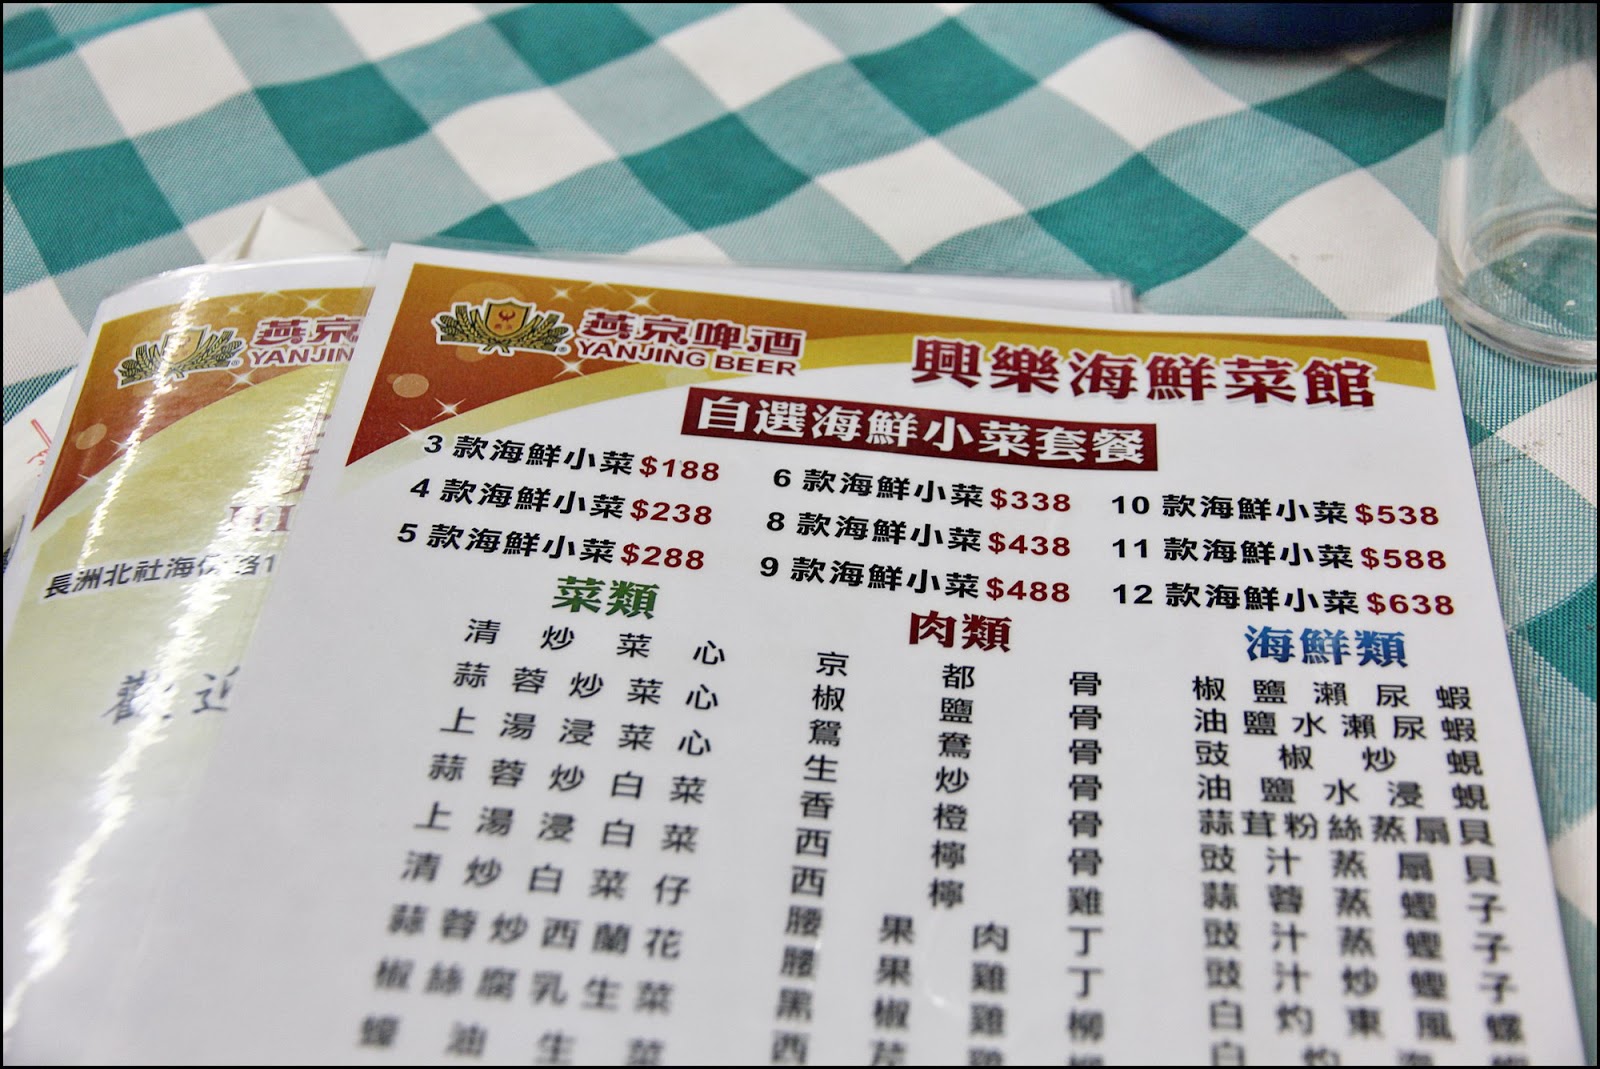 燕京啤酒
YANJING BEER
興樂海鮮菜館
自選海鮮小菜套餐
3 款海鮮小菜 $188
4 款海鮮小菜 $238
5 款海鮮小菜 $288
6 款海鮮小菜 $338
8 款海鮮小菜 $438
9 款海鮮小菜 $488
10 款海鮮小菜 $538
11 款海鮮小菜 $588
12 款海鮮小菜 $638
菜類
清炒菜心
蒜蓉炒菜心
上湯浸菜心
蒜蓉炒白菜
上湯浸白菜
清炒白菜仔
蒜蓉炒西蘭花
椒絲腐乳生菜
蠔油生菜
肉類
京都骨
椒鹽骨
鴛鴦骨
生炒骨
香橙骨
西檸骨
西檸雞
腰果肉丁
腰果雞丁
黑椒雞柳
西芹雞
海鮮類
椒鹽瀨尿蝦
油鹽水瀨尿蝦
豉椒炒蜆
油鹽水浸蜆
蒜茸粉絲蒸扇貝
豉汁蒸扇貝
蒜蓉蒸蟶子
豉汁蒸蟶子
豉汁炒蟶子
白灼東風螺
白灼海
燕京
YANJIN
長洲北社海傍路1
歡迎